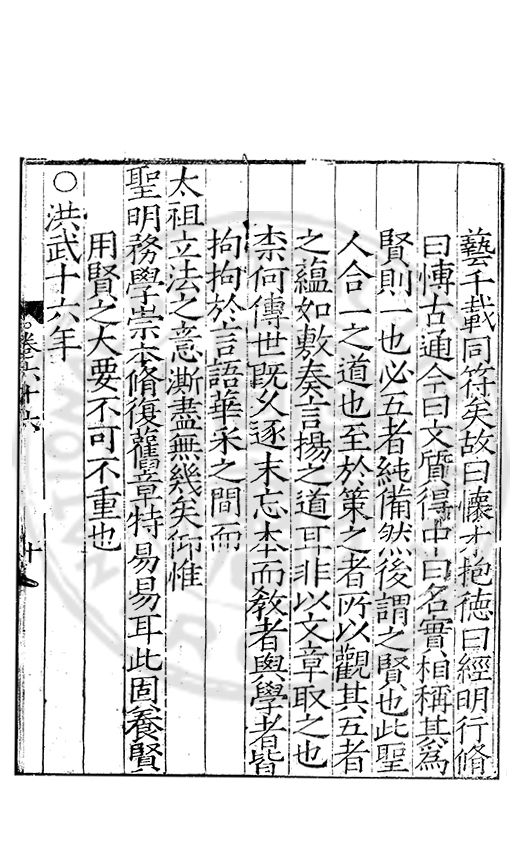 藝千載同符矣故曰懷才抱德曰經明行脩
曰愽古通今曰文質得中曰名實相稱其為
賢則一也必五者純備然後謂之賢也此聖
人合一之道也至於策之者所以觀其五者
之蘊如敷奏言揚之道耳非以文章取之也
柰何傳世既久逐末忘本而教者與學者皆
拘拘於言語華釆之間而
太祖立法之意澌盡無幾矣仰惟
聖明務學崇本脩復舊章特易易耳此固養賢
用賢之大要不可不重也
○洪武十六年
卷六十六
十